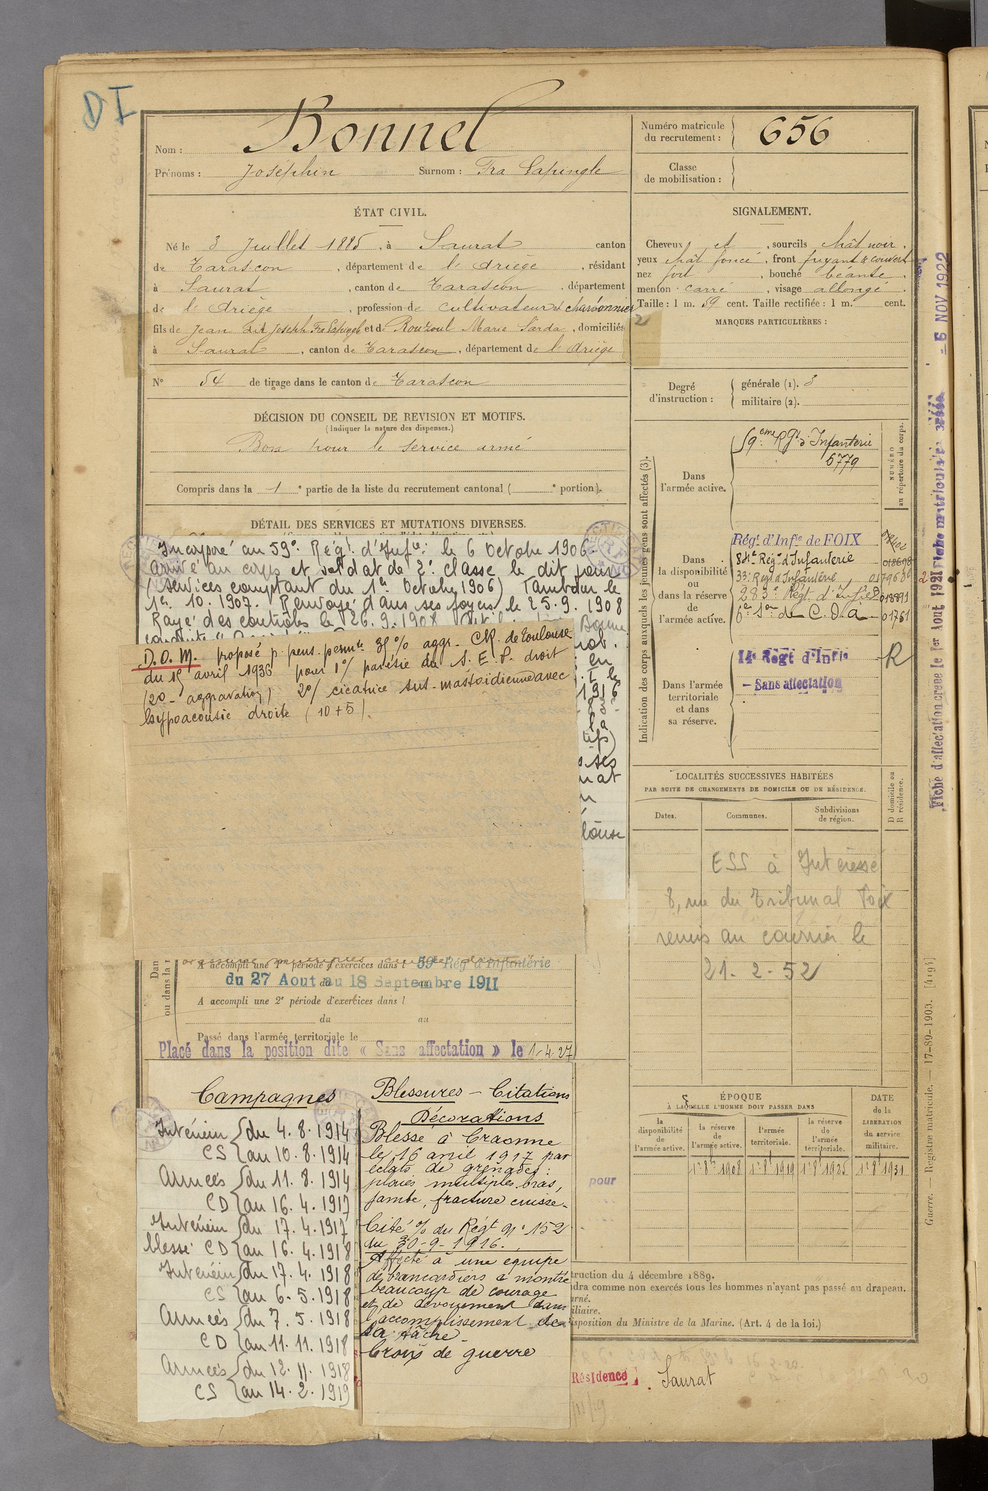 DI
Nom : Bonnel
Prénoms : Joséphin Surnom : Fra Lapingle
Numéro matricule
du recrutement : 656
Classe
de mobilisation :
ÉTAT CIVIL.
Né le 3 Juillet 1885, à Saurat canton
de Tarascon, département de l'Ariège, résidant
à Saurat, canton de Tarascon, département
de l'Ariège, profession de cultivateur & charbonnier
fils de Jean Bte Joseph et de Rouzoul Marie Sarda, domiciliés
à Saurat, canton de Tarascon, département de l'Ariège
N° 54 de tirage dans le canton de Tarascon
DÉCISION DU CONSEIL DE REVISION ET MOTIFS.
(Indiquer la nature des dispenses.)
Bon pour le service armé
Compris dans la 1e partie de la liste du recrutement cantonal ( e portion).
DÉTAIL DES SERVICES ET MUTATIONS DIVERSES.
Incorporé au 59e Régt d'Infie le 6 Octobre 1906
arrivé au corps et soldat de 2e classe le dit jour
(services comptant du 1er Octobre 1906) Tambour le
1er 10. 1907. Renvoyé dans ses foyers le 25.9. 1908
Rayé des contrôles le 26.9.1908
D.O.M. proposé p. pens. permte 35 % aggr. CR. de Toulouse
du 15 avril 1936 pour 1°/ parésie du S.E.P. droit
(20 - aggravation) 2°/ cicatrice sus-mastoïdienne avec
hypoacousie droite (10 + 5).
A accompli une 1re période d'exercices dans l 59 Rég d'Infanterie
du 27 Aout au 18 Septembre 1911
A accompli une 2e période d'exercices dans l
du au
Passé dans l'armée territoriale le
Placé dans la position dite « Sans affectation » le 1.4.27
Campagnes
Intérieur du 4.8.1914
CS au 10.8.1914
Armées du 11.8.1914
CD au 16.4.1917
Intérieur du 17.4.1917
blessé CD au 16.4.1918
Intérieur du 17.4.1918
CS au 6.5.1918
Armées du 7.5.1918
CD au 11.11.1918
Armées du 12.11.1918
CS au 14.2.1919
Blessures - Citations
Décorations
Blessé à Craonne
le 16 avril 1917 par
éclats de grenades :
plaies multiples bras,
jambe, fracture cuisse.
Cité % du Régt n° 152
du 30-9-1916.
Affecté à une équipe
de brancardiers a montré
beaucoup de courage
et de dévouement dans
l'accomplissement de
sa tâche.
Croix de guerre
SIGNALEMENT.
Cheveux et, sourcils chât noir.
yeux chât foncé, front fuyant & couvert
nez fort, bouche béante
menton carré, visage allongé.
Taille : 1 m. 59 cent. Taille rectifiée : 1 m. cent.
MARQUES PARTICULIÈRES :
Degré
d'instruction :
générale (1). 3
militaire (2).
Indication des corps auxquels les jeunes gens sont affectés (3).
NUMÉRO
au répertoire du corps.
Dans
l'armée active.
59eme Rgt d'Infanterie
6779
Dans
la disponibilité
ou
dans la réserve
de
l'armée active.
Régt d'Infie de FOIX
84e Régt d'Infanterie
33e Régt d'Infanterie
283e Régt d'Infie
6e Son de C.O.A 01761
Dans l'armée
territoriale
et dans
sa réserve.
14e Régt d'Infie
- Sans affectation
R
LOCALITÉS SUCCESSIVES HABITÉES
PAR SUITE DE CHANGEMENTS DE DOMICILE OU DE RÉSIDENCE.
D domicile ou
R résidence.
Dates. Communes. Subdivisions
de région.
ESS à Intéressé
8, rue du Tribunal Foix
remis au courrier le
21-2-52
ÉPOQUE
À LAQUELLE L'HOMME DOIT PASSER DANS
DATE
de la
LIBÉRATION
du service
militaire.
la
disponibilité
de
l'armée active.
la réserve
de
l'armée active.
l'armée
territoriale.
la réserve
de
l'armée
territoriale.
1er 8bre 1908 1er 8bre 1919 1er 8bre 1925 1er 8bre 1931
pour
truction du 4 décembre 1889.
dra comme non exercés tous les hommes n'ayant pas passé au drapeau.
isposition du Ministre de la Marine. (Art. 4 de la loi.)
Résidence Saurat
Guerre. — Registre matricule. — 17-89-1903. [4194]
Fiche d'affectation créée le 1er Aout 1921
- 6 NOV 1922